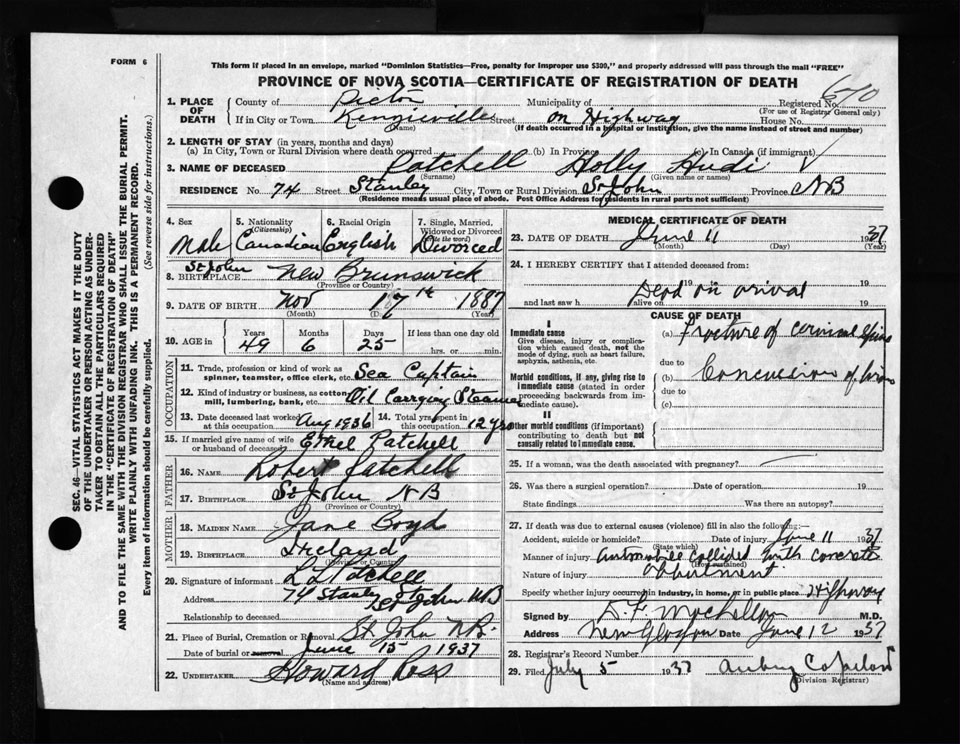 FORM 6
This form if placed in an envelope, marked "Dominion Statistics—Free, penalty for improper use $300," and properly addressed will pass through the mail "FREE"
PROVINCE OF NOVA SCOTIA—CERTIFICATE OF REGISTRATION OF DEATH
1. PLACE OF DEATH County of Pictou Municipality of Registered No. 610
(For use of Registrar General only)
If in City or Town Kenzieville Street on Highway House No.
(Name) (If death occurred in a hospital or institution, give the name instead of street and number)
2. LENGTH OF STAY (in years, months and days)
(a) In City, Town or Rural Division where death occurred (b) In Province (c) In Canada (if immigrant)
3. NAME OF DECEASED Patchell Holly
(Surname) (Given name or names)
RESIDENCE No. 74 Street Stanley City, Town or Rural Division St John Province NB
(Residence means usual place of abode. Post Office Address for residents in rural parts not sufficient)
SEC. 46—VITAL STATISTICS ACT MAKES IT THE DUTY
OF THE UNDERTAKER OR PERSON ACTING AS UNDER-
TAKER TO OBTAIN ALL THE PARTICULARS REQUIRED
IN THE "CERTIFICATE OF REGISTRATION OF DEATH"
AND TO FILE THE SAME WITH THE DIVISION REGISTRAR WHO SHALL ISSUE THE BURIAL PERMIT.
WRITE PLAINLY WITH UNFADING INK. THIS IS A PERMANENT RECORD.
Every item of information should be carefully supplied. (See reverse side for instructions.)
4. Sex Male
5. Nationality (Citizenship) Canadian
6. Racial Origin English
7. Single, Married, Widowed or Divorced (Write the word) Divorced
8. BIRTHPLACE St John New Brunswick
(Province or Country)
9. DATE OF BIRTH Nov 17th 1887
(Month) (Day) (Year)
10. AGE IN Years 49 Months 6 Days 25 If less than one day old hrs. or min.
OCCUPATION
11. Trade, profession or kind of work as spinner, teamster, office clerk, etc. Sea Captain
12. Kind of industry or business, as cotton mill, lumbering, bank, etc. Oil Carrying Steamer
13. Date deceased last worked at this occupation Aug 1936
14. Total yrs. spent in this occupation 12 yrs
15. If married give name of wife or husband of deceased Ethel Patchell
FATHER
16. NAME Robert Patchell
17. BIRTHPLACE St John NB
(Province or Country)
MOTHER
18. MAIDEN NAME Jane Boyd
19. BIRTHPLACE Ireland
(Province or Country)
20. Signature of informant Patchell
Address 74 Stanley St St John NB
Relationship to deceased
21. Place of Burial, Cremation or Removal St. John NB.
Date of burial or removal June 15 1937
22. UNDERTAKER Howard Ross
(Name and address)
MEDICAL CERTIFICATE OF DEATH
23. DATE OF DEATH June 11 1937
(Month) (Day) (Year)
24. I HEREBY CERTIFY that I attended deceased from:
19 to 19
Dead on arival
and last saw h alive on 19
CAUSE OF DEATH
I
Immediate cause
Give disease, injury or complication which caused death, not the mode of dying, such as heart failure, asphyxia, asthenia, etc.
(a) Fracture of cervical spine
due to
Morbid conditions, if any, giving rise to immediate cause (stated in order proceeding backwards from immediate cause).
(b) Concussion of brain
due to
(c)
II
Other morbid conditions (if important) contributing to death but not causally related to immediate cause.
25. If a woman, was the death associated with pregnancy?
26. Was there a surgical operation? Date of operation 19
State findings Was there an autopsy?
27. If death was due to external causes (violence) fill in also the following:
Accident, suicide or homicide? Date of injury June 11 1937
(State which)
Manner of injury Automobile collided with concrete
(How sustained)
Nature of injury abutment
Specify whether injury occurred in industry, in home, or in public place Highway
Signed by M.D.
Address New Glasgow Date June 12 1937
28. Registrar's Record Number
29. Filed July 5 1937 Aubrey Copeland
(Division Registrar)